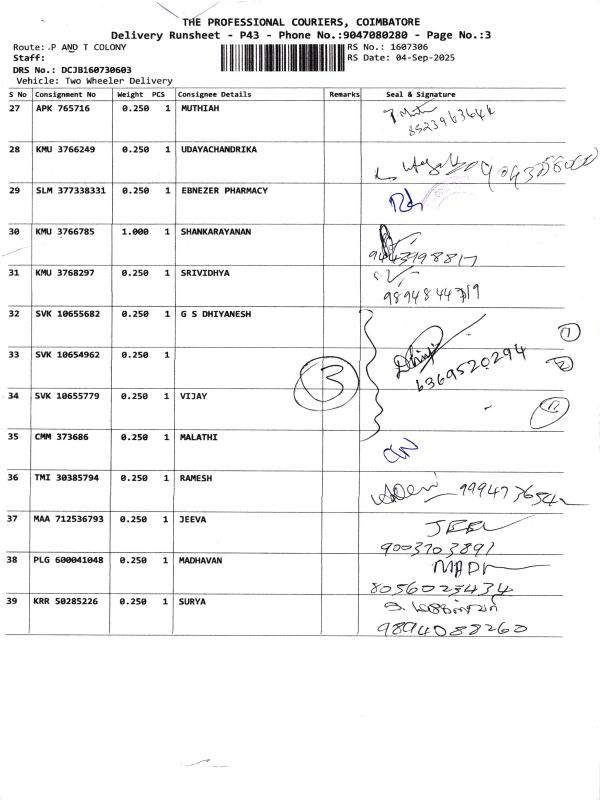 THE PROFESSIONAL COURIERS, COIMBATORE
Delivery Runsheet - P43 - Phone No.:9047080280 - Page No.:3
Route: P AND T COLONY RS No.: 1607306
Staff: RS Date: 04-Sep-2025
DRS No.: DCJB160730603
Vehicle: Two Wheeler Delivery
S No Consignment No Weight PCS Consignee Details Remarks Seal & Signature
27 APK 765716 0.250 1 MUTHIAH
28 KMU 3766249 0.250 1 UDAYACHANDRIKA
29 SLM 377338331 0.250 1 EBNEZER PHARMACY
30 KMU 3766785 1.000 1 SHANKARAYANAN
9443998817
31 KMU 3768297 0.250 1 SRIVIDHYA
9894844319
32 SVK 10655682 0.250 1 G S DHIYANESH
1
33 SVK 10654962 0.250 1
6369520294
2
3
34 SVK 10655779 0.250 1 VIJAY
35 CMM 373686 0.250 1 MALATHI
36 TMI 30385794 0.250 1 RAMESH
37 MAA 712536793 0.250 1 JEEVA
9003703891
38 PLG 600041048 0.250 1 MADHAVAN
8056023434
39 KRR 50285226 0.250 1 SURYA
9894088260